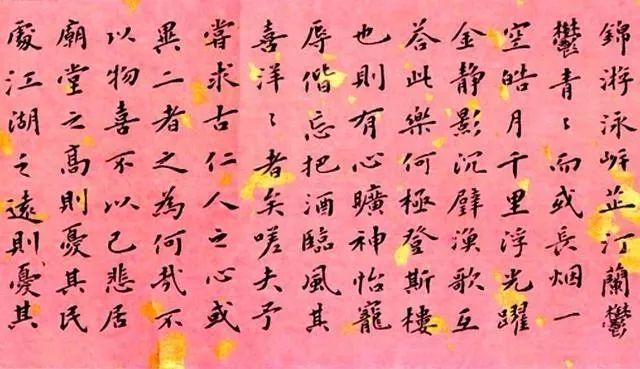 錦游泳岸芷汀蘭欝
欝青々而或長烟一
空皓月千里浮光躍
金静影沉璧漁歌互
答此樂何極登斯樓
也則有心曠神怡寵
辱偕忘把酒臨風其
喜洋々者矣嗟夫予
嘗求古仁人之心或
異二者之為何哉不
以物喜不以己悲居
廟堂之高則憂其民
處江湖之遠則憂其